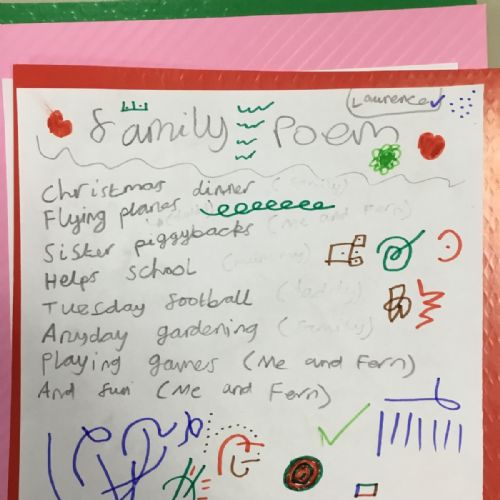 Laurence
Family Poem
Christmas dinner (family)
Flying planes
Sister piggybacks (Me and Fern)
Helps school
Tuesday football
Anyday gardening (family)
Playing games (Me and Fern)
And fun (Me and Fern)